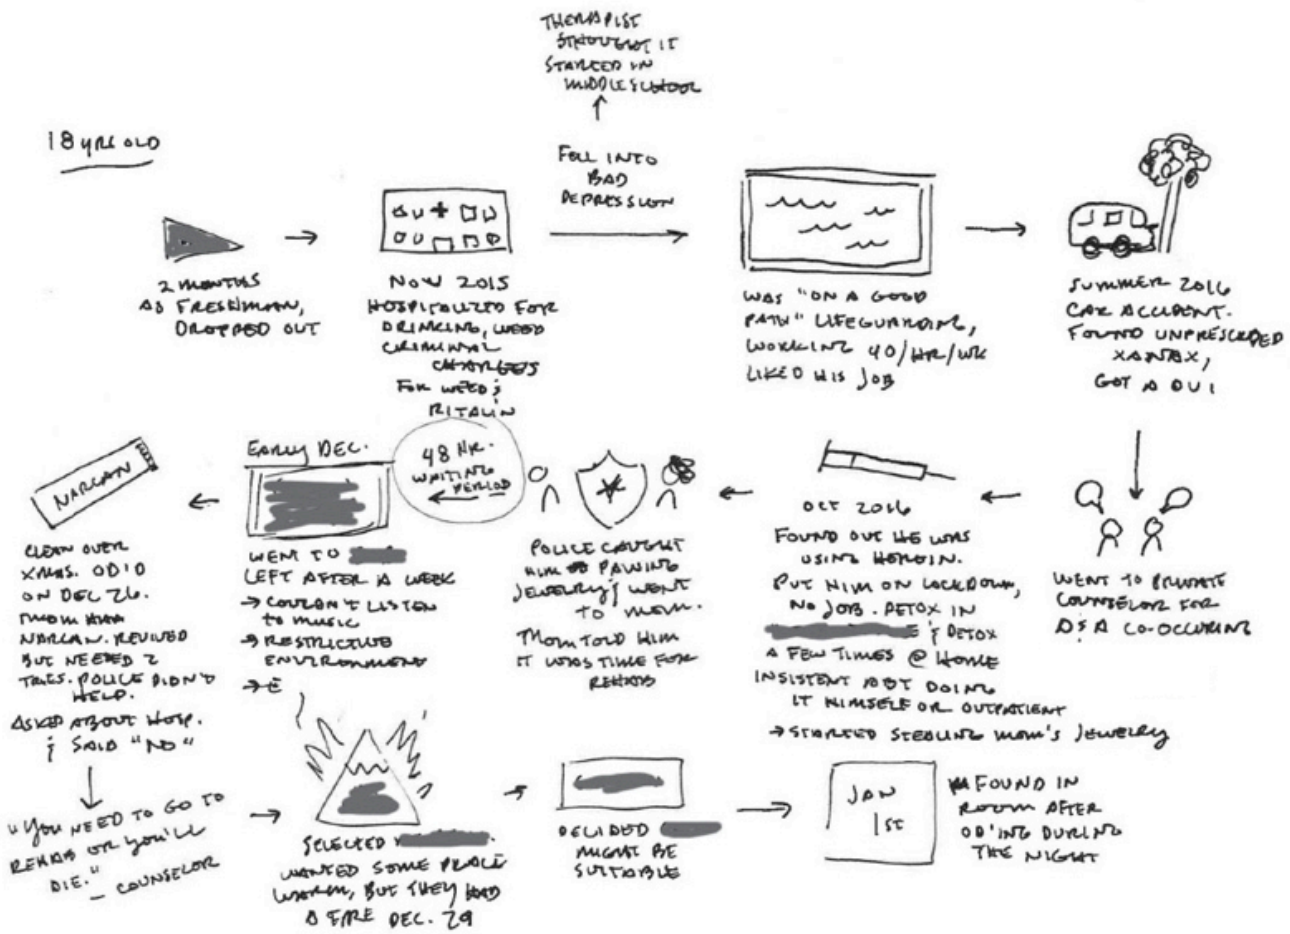 18 YRS OLD
2 MONTHS
AS FRESHMAN,
DROPPED OUT
NOV 2015
HOSPITALIZED FOR
DRINKING, WEED
CRIMINAL
CHARGES
FOR WEED &
RITALIN
THERAPIST
THOUGHT IT
STARTED IN
MIDDLE SCHOOL
FELL INTO
BAD
DEPRESSION
WAS "ON A GOOD
PATH" LIFEGUARDING,
WORKING 40/HR/WK
LIKED HIS JOB
SUMMER 2016
CAR ACCIDENT.
FOUND UNPRESCRIBED
XANAX,
GOT A DUI
WENT TO PRIVATE
COUNSELOR FOR
D&A CO-OCCURING
OCT 2016
FOUND OUT HE WAS
USING HEROIN.
PUT HIM ON LOCKDOWN,
NO JOB. DETOX IN
& DETOX
A FEW TIMES @ HOME
INSISTENT ABT DOING
IT HIMSELF OR OUTPATIENT
→ STARTED STEALING MOM'S JEWELRY
POLICE CAUGHT
HIM PAWING
JEWELRY & WENT
TO MOM.
MOM TOLD HIM
IT WAS TIME FOR
REHAB
48 HR.
WAITING
PERIOD
EARLY DEC.
WENT TO
LEFT AFTER A WEEK
→ COULDN'T LISTEN
TO MUSIC
→ RESTRICTIVE
ENVIRONMENT
NARCAN
CLEAN OVER
XMAS. OD'D
ON DEC 26.
MOM HAD
NARCAN. REVIVED
BUT NEEDED 2
TRIES. POLICE DIDN'T
HELP.
ASKED ABOUT HOSP.
& SAID "NO"
"YOU NEED TO GO TO
REHAB OR YOU'LL
DIE."
— COUNSELOR
SELECTED
WANTED SOME PLACE
WARM, BUT THEY HAD
A FIRE DEC. 29
DECIDED
MIGHT BE
SUITABLE
JAN
1ST
FOUND IN
ROOM AFTER
OD'ING DURING
THE NIGHT